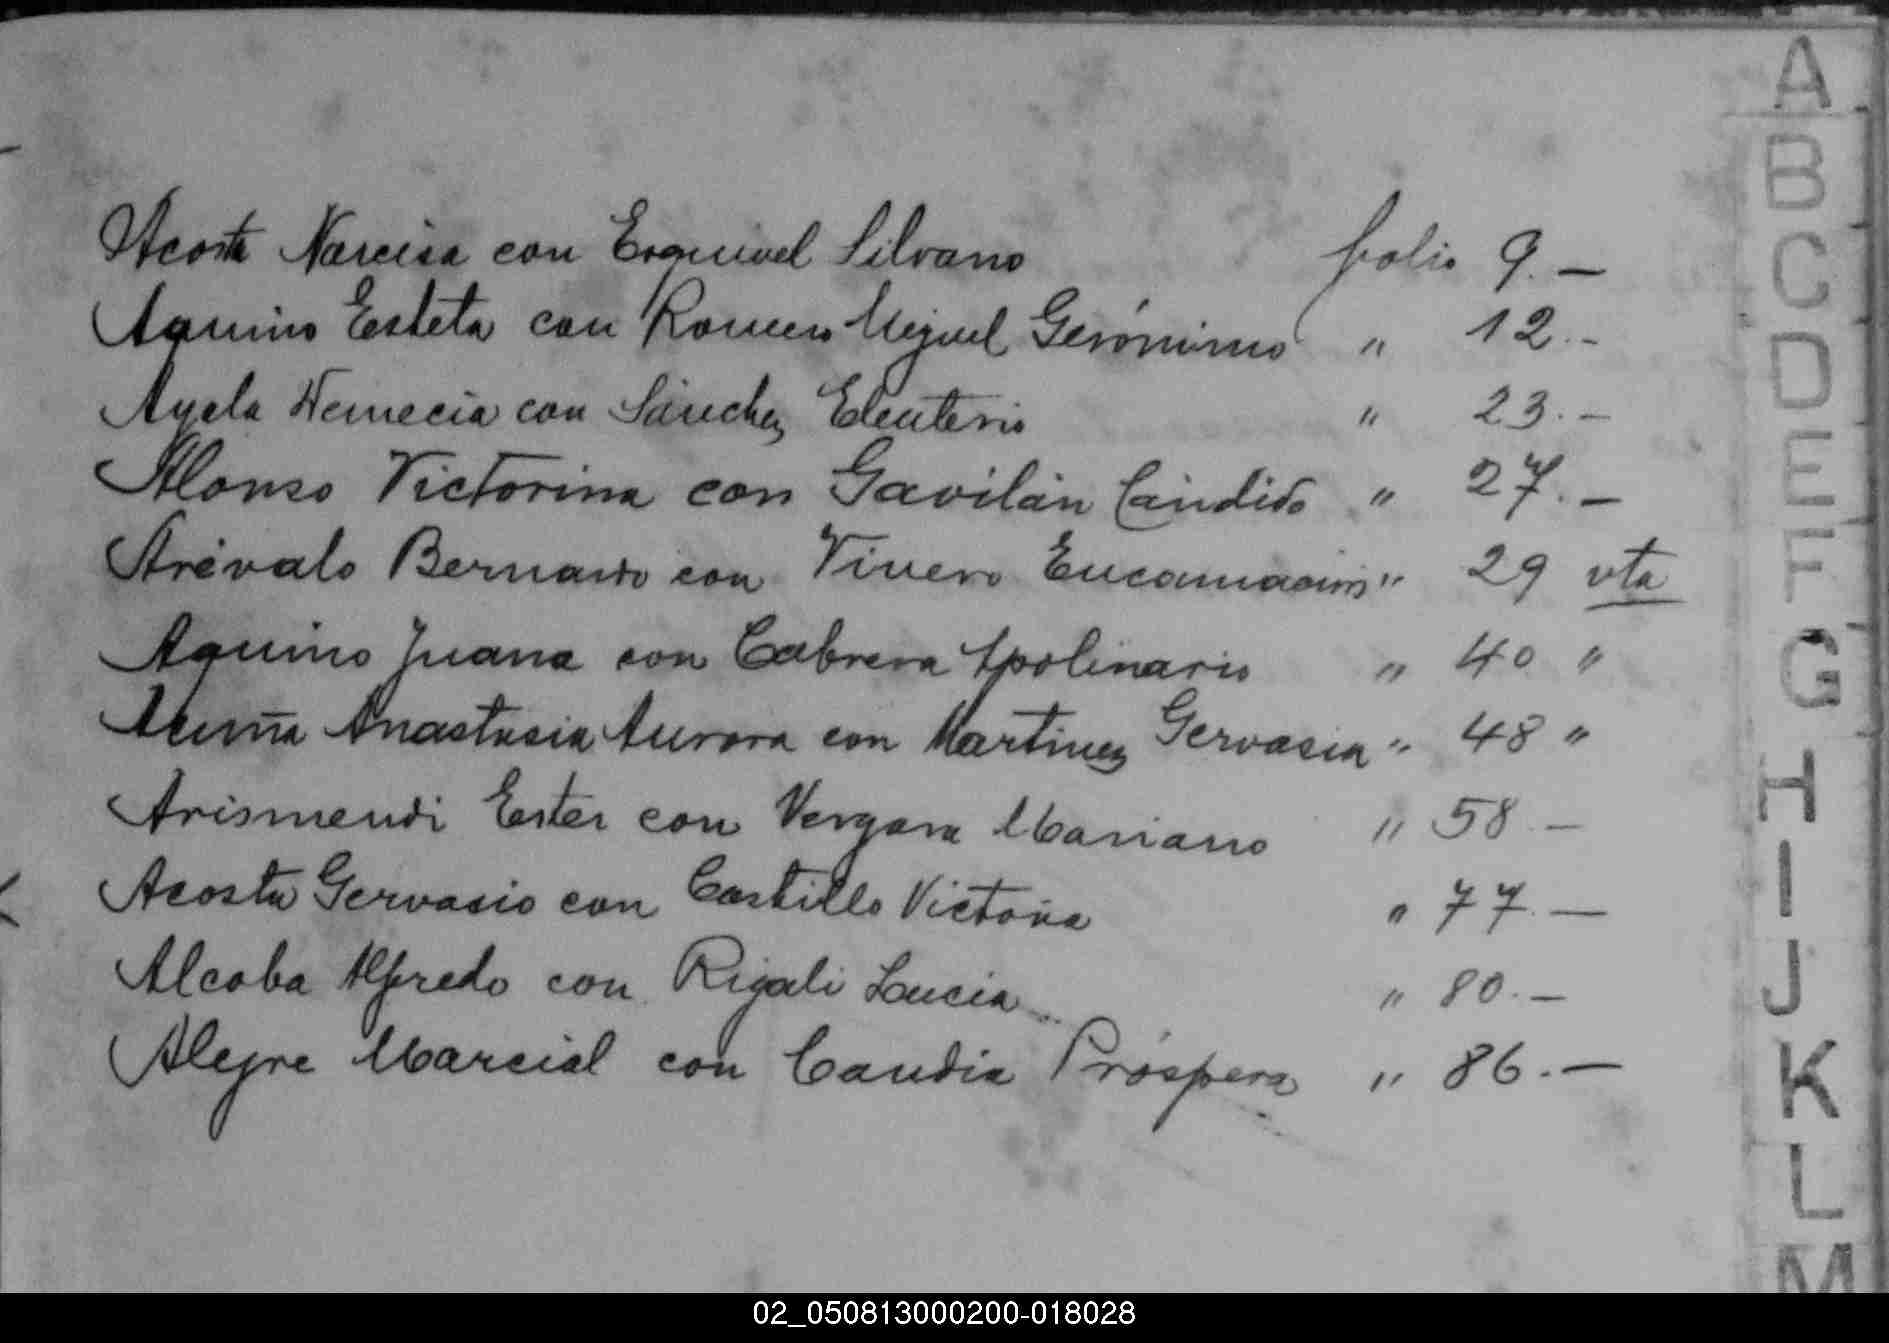 Acosta Narcisa con Esquivel Silvano folio 9.—
Aquino Esteta con Romero Miguel Gerónimo " 12.-
Ayala Nemecia con Sánchez Eleuterio " 23.-
Alonso Victorina con Gavilán Cándido " 27.—
Arévalo Bernardo con Vivero Encarnación " 29 vta
Aquino Juana con Cabrera Apolinario " 40 "
Acuña Anastasia Aurora con Martinez Gervasia " 48 "
Arismendi Ester con Vergara Mariano " 58.—
Acosta Gervasio con Castillo Victoria " 77.—
Alcoba Alfredo con Rigali Lucia " 80.—
Alegre Marcial con Candia Próspera " 86.—
A
B
C
D
E
F
G
H
I
J
K
L
M
02_050813000200-018028